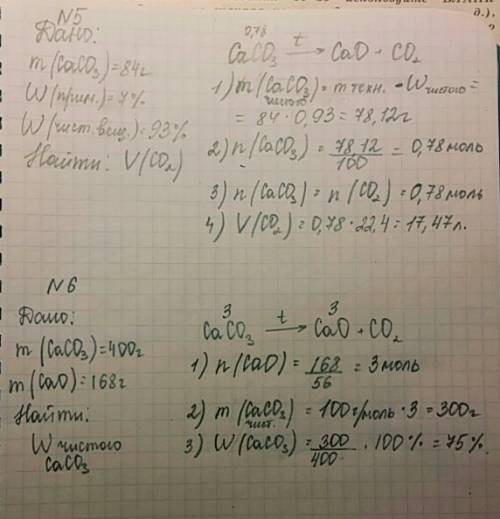 N5
Дано:
m(CaCO₃)=84г
W(прим.)=7%
W(чист.вещ.)=93%
Найти: V(CO₂)
0,78
CaCO₃ —t→ CaO + CO₂
1) m(CaCO₃)= m техн. · W чистого =
чистого
= 84 · 0,93 = 78,12г
2) n(CaCO₃) = 78 12/100 = 0,78 моль
3) n(CaCO₃) = n(CO₂) = 0,78 моль
4) V(CO₂) = 0,78 · 22,4 = 17,47 л.
N6
Дано:
m(CaCO₃)=400г
m(CaO)=168г
Найти:
W чистого
CaCO₃
3 3
CaCO₃ —t→ CaO + CO₂
1) n(CaO) = 168/56 = 3 моль
2) m(CaCO₃) = 100г/моль · 3 = 300г
чист.
3) W(CaCO₃) = 300/400 · 100% = 75%